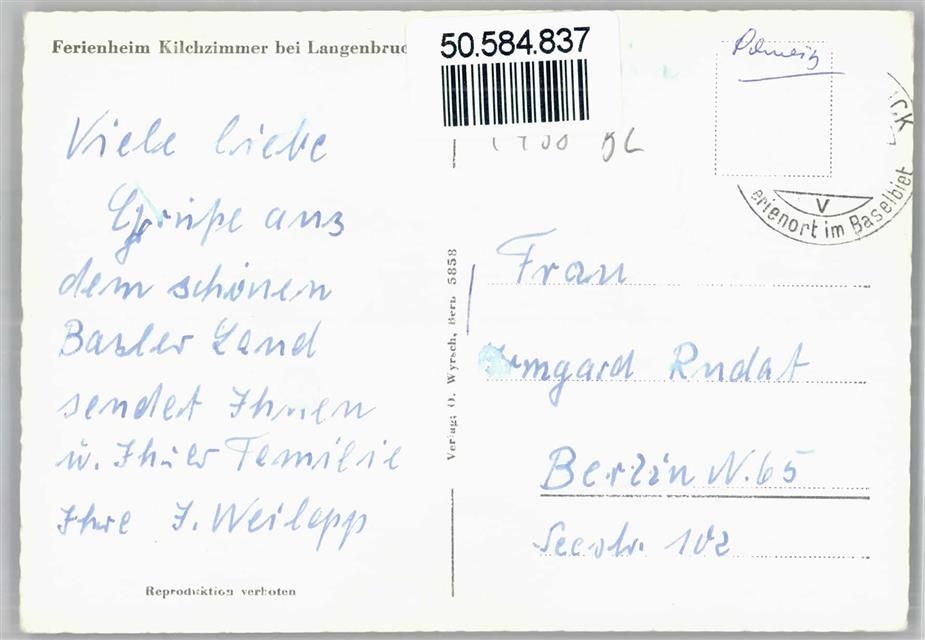 Ferienheim Kilchzimmer bei Langenbruc
50.584.837
Viele liebe
Grüße aus
dem schönen
Basler Land
sendet Ihnen
u. Ihrer Familie
Ihre J. Weilepp
Reproduktion verboten
Verlag: O. Wyrsch, Bern 5858
BL
UCK
erienort im Baselbiet
V
Frau
Irmgard Rudat
Berlin N.65
Seestr. 102